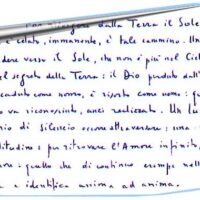 dalla Terra il Sole
e celato, immanente, è tale cammino. Un
dere verso il Sole, che non è più nel Ciel
el segreto della Terra: il Dio perduto dall'
caduto come uomo, è risorto come uomo: q
o va riconosciuto, anzi realizzato. Un lu
rio di silenzio occorre attraversare: una s
litudine: per ritrovare l'Amore infinito,
are: quello che di continuo erompe nell
e identifica anima ad anima.